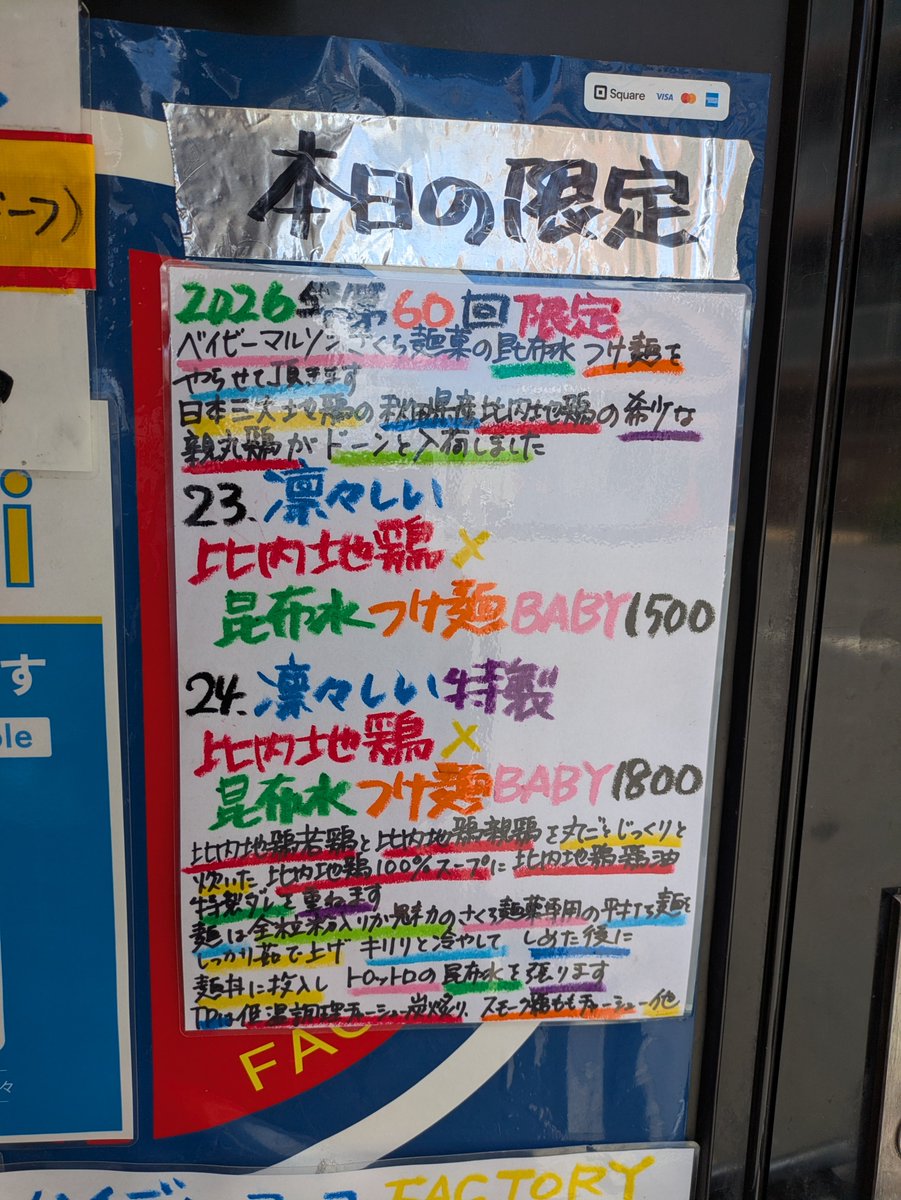 Square VISA
本日の限定
2026年第60回限定
ベイビーマルソンさくら麺菓の昆布水つけ麺を
やらせて頂きます
日本三大地鶏の秋田県産比内地鶏の希少な
親丸鶏がドーンと入荷しました
23.凛々しい
比内地鶏×
昆布水つけ麺BABY1500
24.凛々しい特製
比内地鶏×
昆布水つけ麺BABY1800
比内地鶏若鶏と比内地鶏親鶏を丸ごとじっくりと
炊いた比内地鶏100%スープに比内地鶏鶏油
特製ダレを重ねます
麺は全粒粉入りが魅力のさくら麺菓専用の平打ち麺を
しっかり茹で上げ キリリと冷やして しめた後に
麺丼に投入し トロットロの昆布水を張ります
TPは低温調理チャーシュー炭炙り、スモーク鶏ももチャーシュー他
ーフ)
i
す
ble
FAC
FACTORY